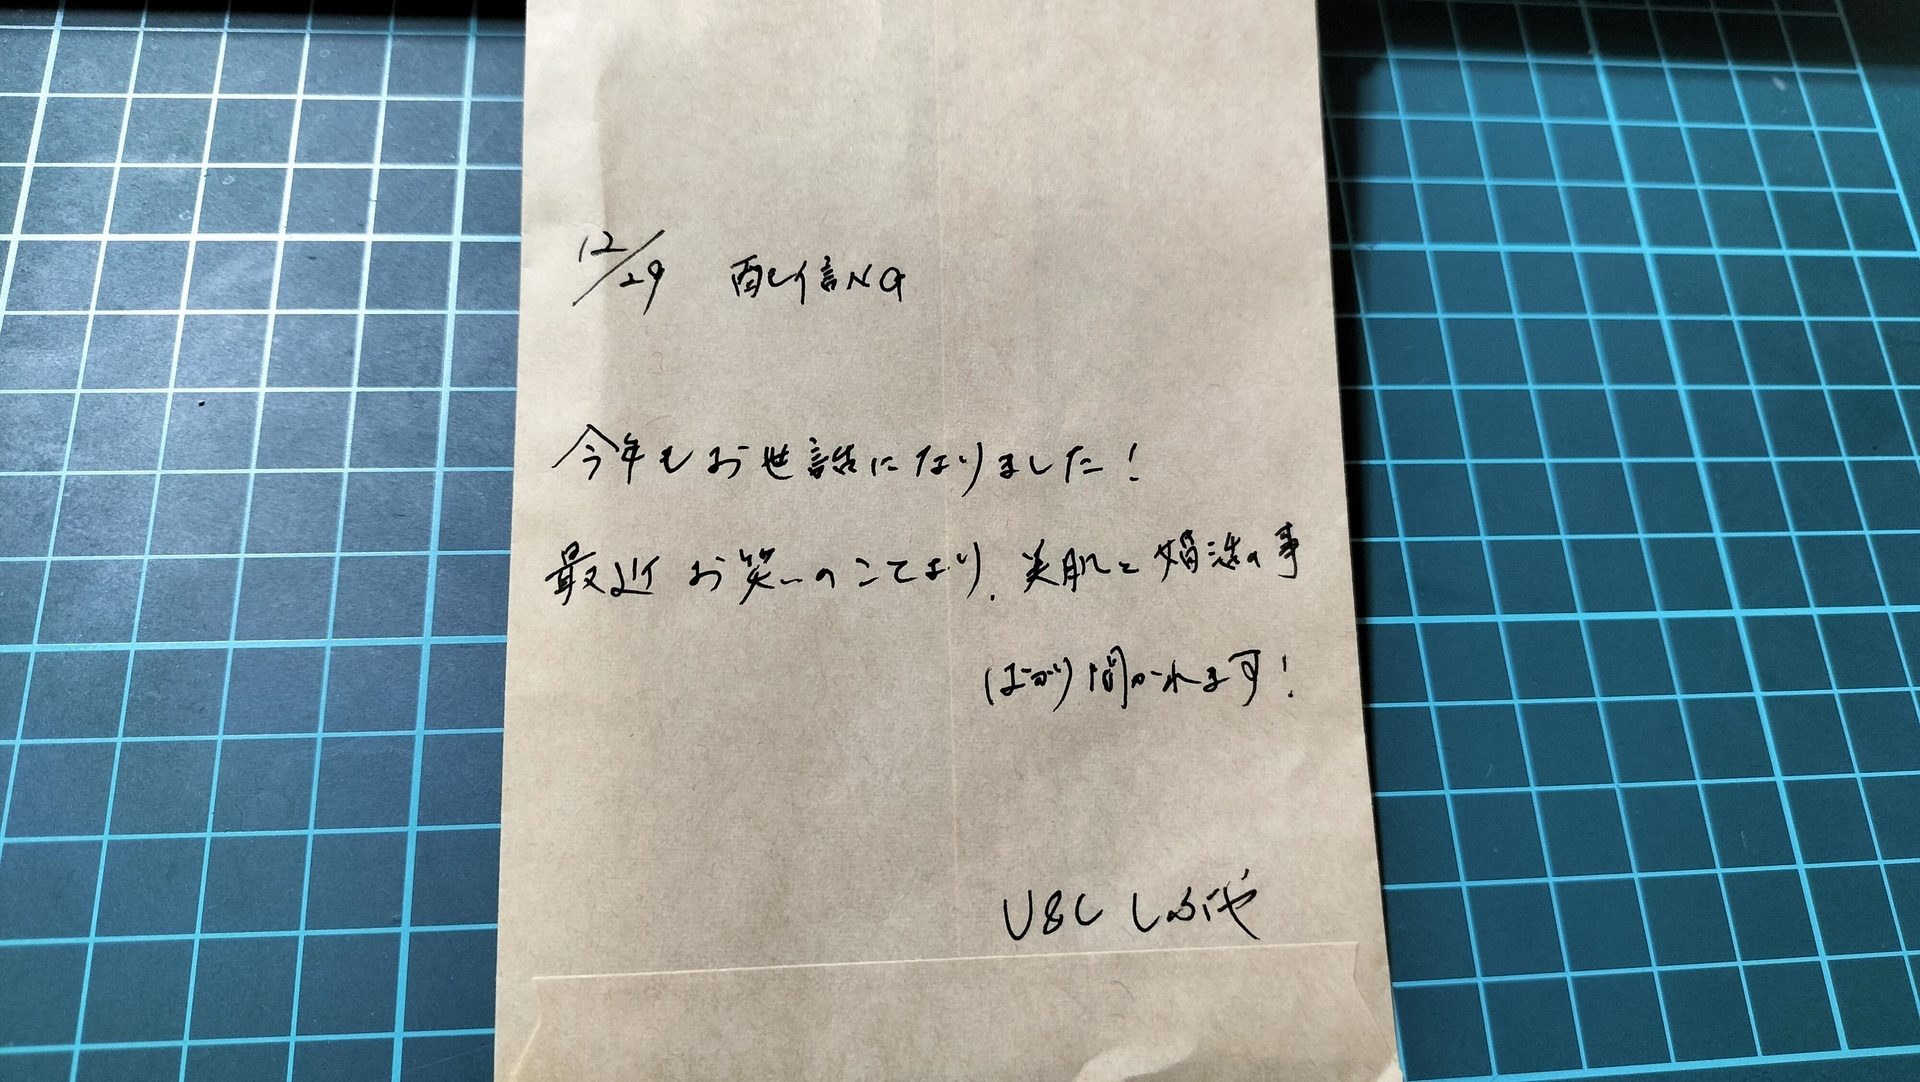 12/29 配信NG
今年もお世話になりました!
最近お笑いのことより、美肌と婚活の事
ばかり聞かれます!
U&C しぶや